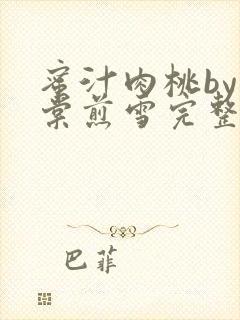 蜜汁肉桃by
棠煎雪完整
巴菲